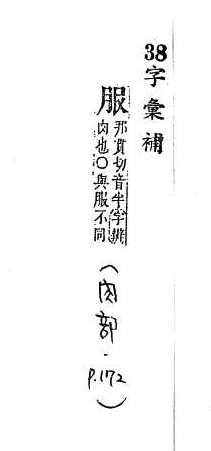 38字彙補
服
那貫切音半字
肉也○與服不同
(肉部·P.172)